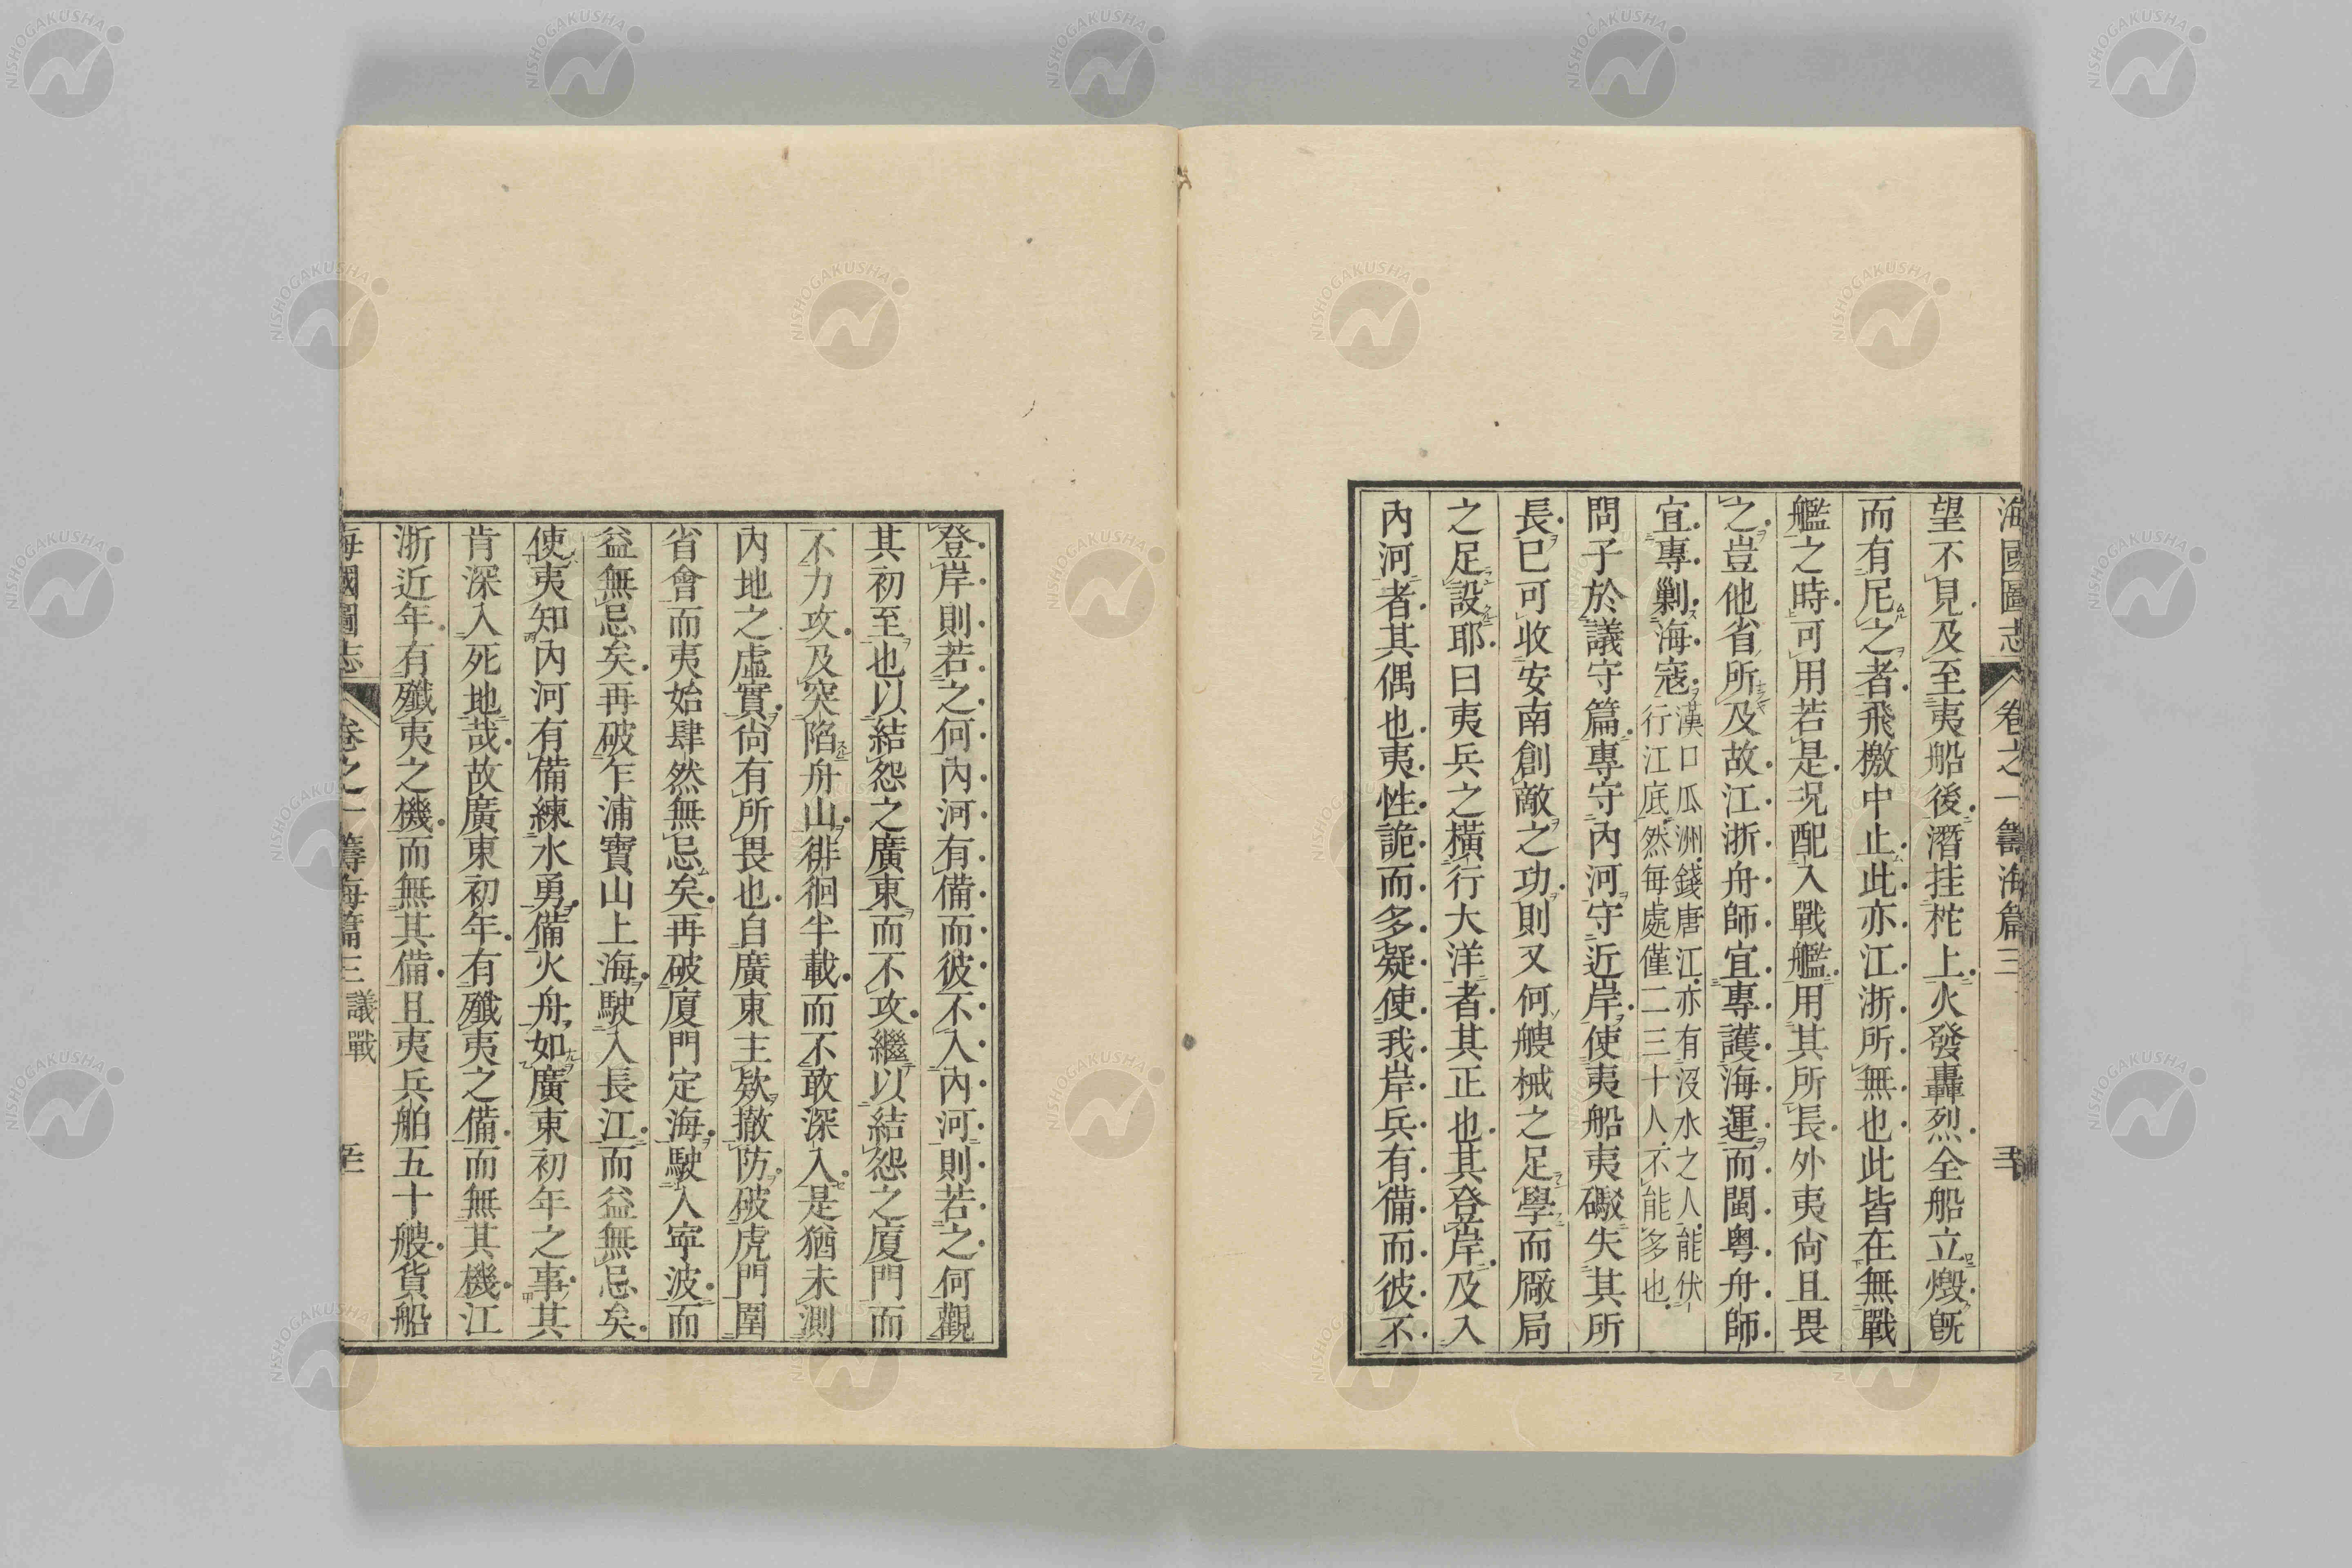 海國圖志 卷之一 籌海篇三
望不見及至夷船後潛挂柁上火發轟烈全船立燬旣
而有尼之者飛檄中止此亦江浙所無也此皆在無戰
艦之時可用若是況配入戰艦用其所長外夷尙且畏
之豈他省所及故江浙舟師宜專護海運而閩粤舟師
宜專剿海寇漢口瓜洲錢唐江亦有沒水之人能伏
行江底然每處僅二三十人不能多也
問子於議守篇專守內河守近岸使夷船夷礮失其所
長已可收安南創敵之功則又何艘械之足學而厰局
之足設耶曰夷兵之橫行大洋者其正也其登岸及入
內河者其偶也夷性詭而多疑使我岸兵有備而彼不
登岸則若之何內河有備而彼不入內河則若之何觀
其初至也以結怨之廣東而不攻繼以結怨之廈門而
不力攻及突陷舟山徘徊半載而不敢深入是猶未測
內地之虛實尙有所畏也自廣東主欵撤防破虎門圍
省會而夷始肆然無忌矣再破廈門定海駛入寧波而
益無忌矣再破乍浦寶山上海駛入長江而益無忌矣
使夷知內河有備練水勇備火舟如廣東初年之事其
肯深入死地哉故廣東初年有殲夷之備而無其機江
浙近年有殲夷之機而無其備且夷兵舶五十艘貨船
海國圖志 卷之一 籌海篇三 議戰
NISHOGAKUSHA